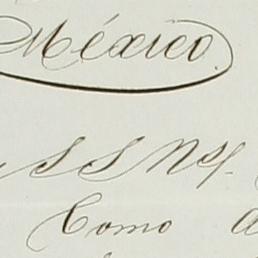 México.
S S Nos/.
Como